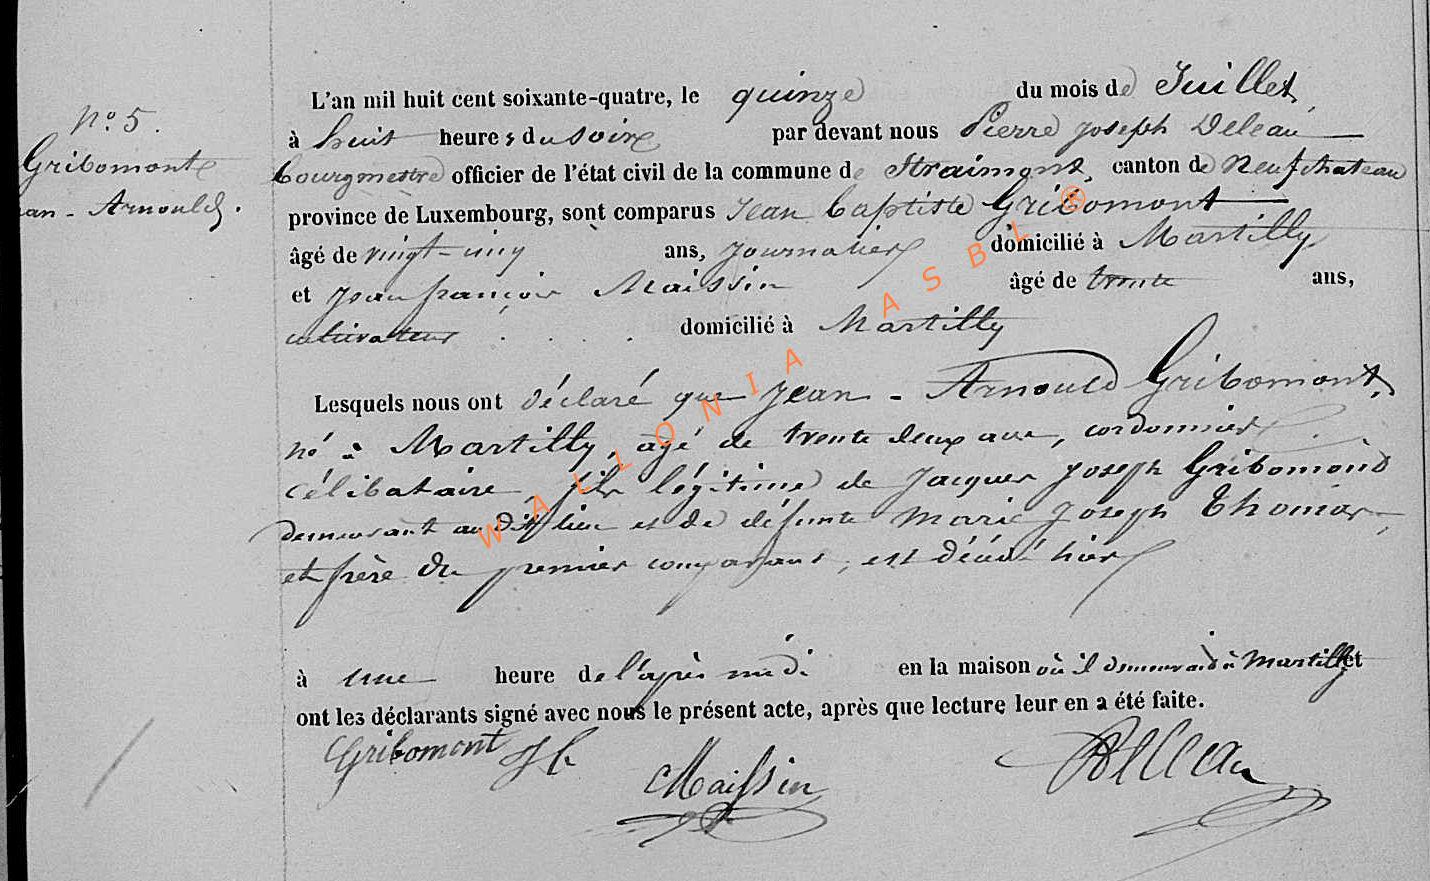 N° 5.
Gribomont
an - Arnould.
L'an mil huit cent soixante-quatre, le quinze du mois de Juillet,
à huit heures du soir par devant nous Pierre Joseph Deleau
bourgmestre officier de l'état civil de la commune de Straimont, canton de Neufchateau
province de Luxembourg, sont comparus Jean baptiste Gribomont
âgé de vingt-cinq ans, journalier domicilié à Martilly
et Jean françois Maissin âgé de trente ans,
cultivateur domicilié à Martilly
Lesquels nous ont déclaré que Jean - Arnould Gribomont,
né à Martilly, agé de trente deux ans, cordonnier
célibataire, fils légitime de Jacques Joseph Gribomond
demeurant au dit lieu et de défunte Marie Joseph Thomas,
et frère du premier comparant, est décédé hier
à une heure de l'après midi en la maison où il demeurait à Martilly et
ont les déclarants signé avec nous le présent acte, après que lecture leur en a été faite.
Gribomont J b
Maissin
Deleau
WALLONIA ASBL ®